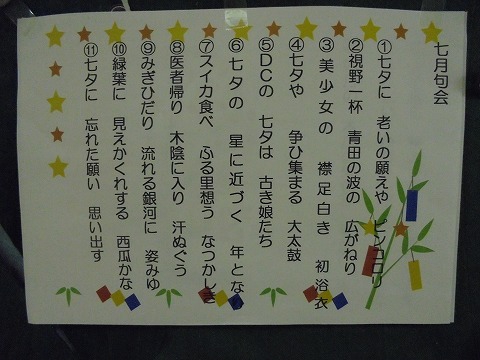 七月句会
①七夕に 老いの願えや ピンコロリ
②視野一杯 青田の波の 広がねり
③美少女の 襟足白き 初浴衣
④七夕や 争ひ集まる 大太鼓
⑤DCの 七夕は 古き娘たち
⑥七夕の 星に近づく 年となり
⑦スイカ食べ ふる里想う なつかしき
⑧医者帰り 木陰に入り 汗ぬぐう
⑨みぎひだり 流れる銀河に 姿みゆ
⑩緑葉に 見えかくれする 西瓜かな
⑪七夕に 忘れた願い 思い出す